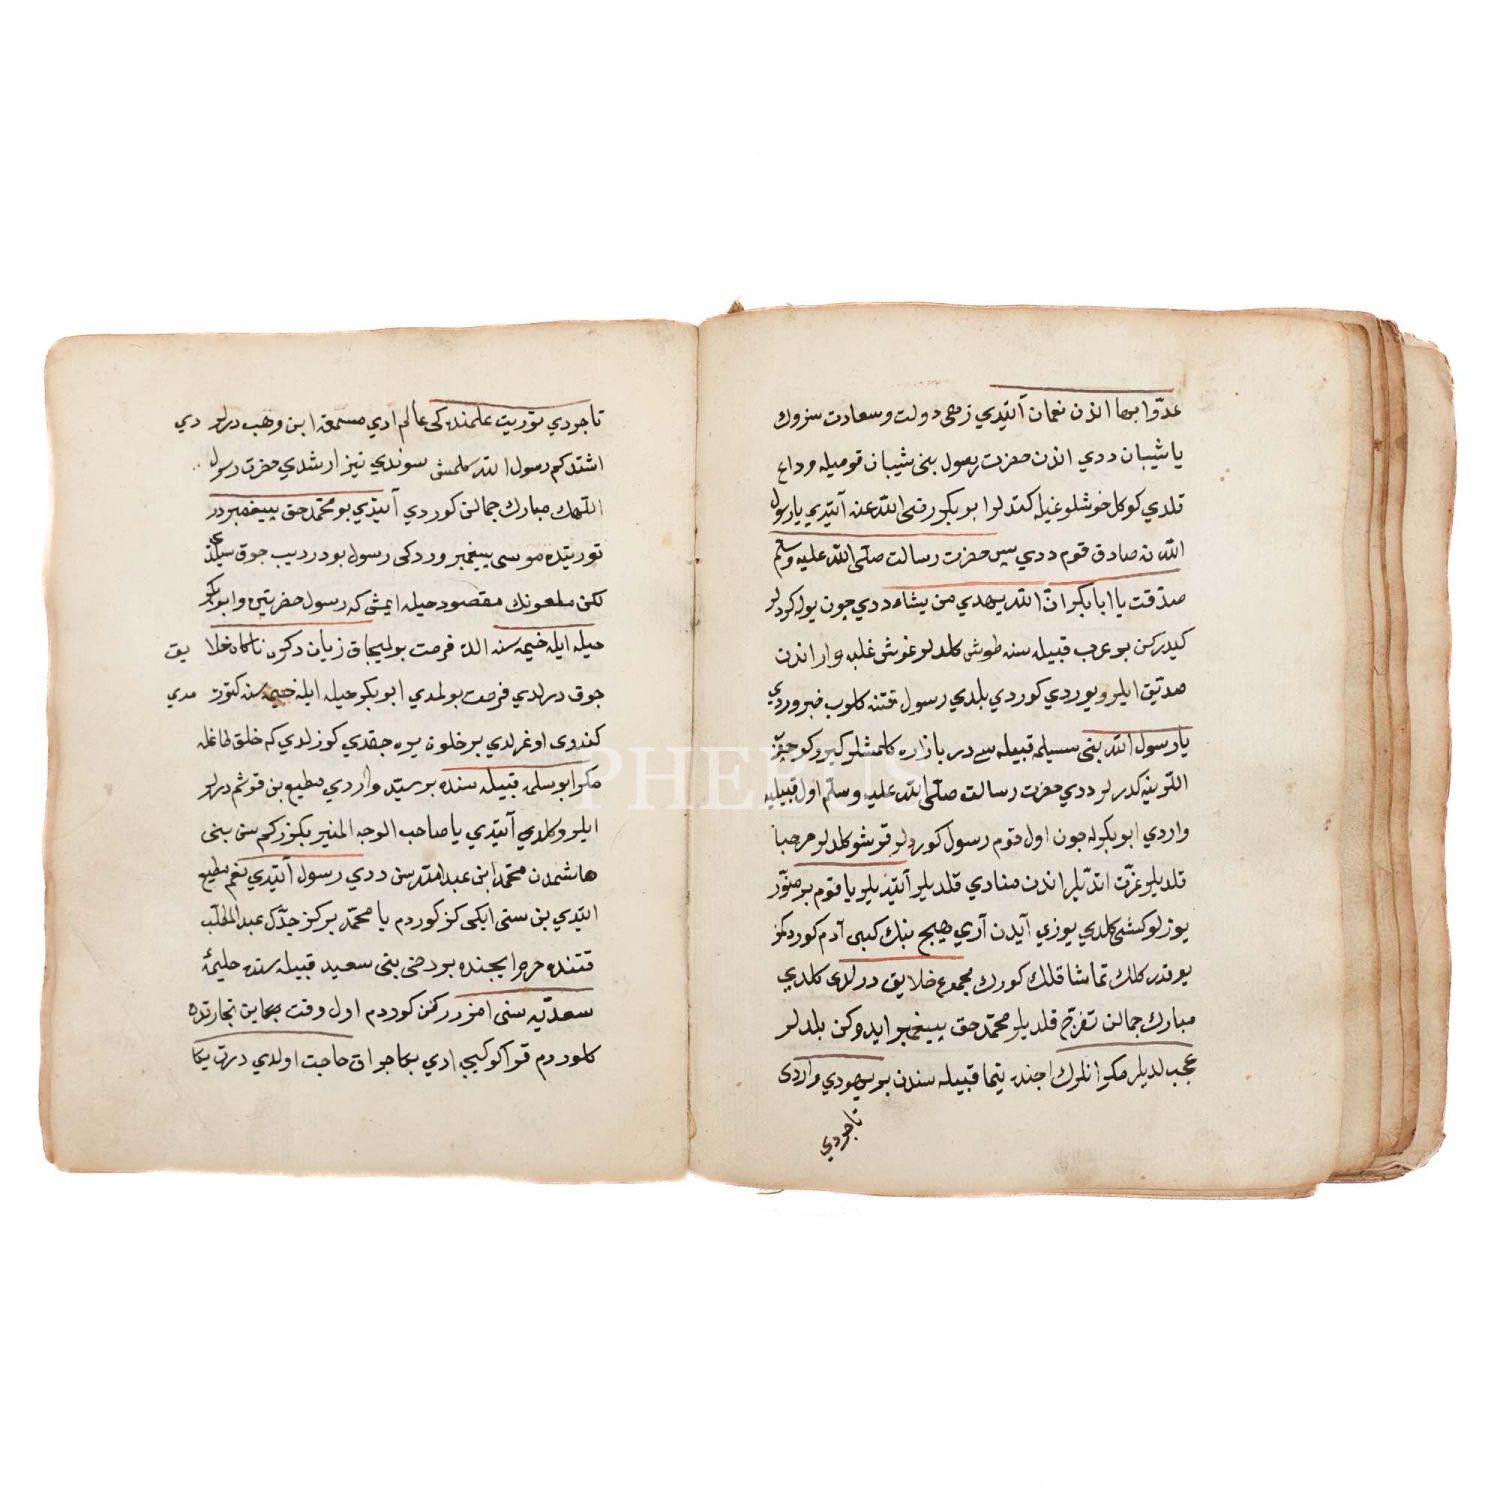 عدّوا بها اندن نعمان آيتدي زهى دولت و سعادت سزوك
يا شيبان ددي اندن حضرت رسول بنى شيبان قوميله وداع
قلدي كوكل خوشلوغيله كتدلر ابو بكر رضى الله عنه آيتدي يا رسول
الله نه صادق قوم ددي پس حضرت رسالت صلّى الله عليه وسلّم
صدّقت يا ابا بكر انّ الله يهدي من يشاء ددي چون يوله كردلر
كيدركن بو عرب قبيله سنه طوش كلدلر غوش غلبه وار اندن
صديق ايلرو يوردي كوردي بلدي رسول قتنه كلوب خبر وردي
يا رسول الله بنى سيلمه قبيله سى در بازاره كلمشلر كيرو كوچب
اللرينه كدرلر ددي حضرت رسالت صلّى الله عليه وسلّم اول قبيله يه
واردي ابو بكرله چون اول قوم رسول كوردلر قرشو كلدلر مرحبا
قلديلر عزّت اتديلر اندن منادي قلديلر آيتديلر يا قوم بر منوّر
يوزلو كشى كلدي يوزي آيدن آري هيچ بنك كبى آدم كوردكز
يوقدر كلك تماشا قلك كورك مجموع خلايق درلدى كلدي
مبارك جمالن تفرّج قلديلر محمّد حق پيغمبر ايدوكن بلدلر
عجب لديلر مكر انلرك اچنده يتما قبيله سندن بر يهودي واردى
تاجردي
تاجردي توريت علمنده كى عالم ادي مسمعه ابن وهب درلر دي
اشتدكم رسول الله كلمش سوندي تيز ارشدي حضرت رسول
اللهك مبارك جمالن كوردي آيتدي بو محمّد حق پيغمبر در
توريتده موسى پيغمبر وردكى رسول بودر ديب چوق سيلدي
لكن ملعونك مقصود حيله ايمش كه رسول حضرتين و ابو بكر
حيله ايله خيمه سنه الده فرصت بوليجاق زيان دكره ناكاه خلا يق
چوق درلدي فرصت بولمدي ابو بكر حيله ايله خيمه سنه كتورد مدي
كندوى اوغرلدي بر خلوت يره چقدي كوزلدي كه خلق طاغله
مكر ابو سلمه قبيله سنده بر سيّد واردي مطيع بن قوثم درلر
ايلرو كلدي آيتدي يا صاحب الوجه المنير بكزركم سن بنى
هاشمدن محمّد ابن عبد الله سن ددي رسول آيتدي نعم مطيع
ايتدي بن سنى ايكى كز كوردم يا محمّد بر كز جدّك عبد المطّلب
قتنده حرم ايچنده بو دخى بنى سعيد قبيله سنده حليمهٔ
سعديّه سنى امزرركن كوردم اول وقت بحاين تجارتده
كلوردم قواكوكيجى ادي بكا جوان حاجت اولدي درت يكا